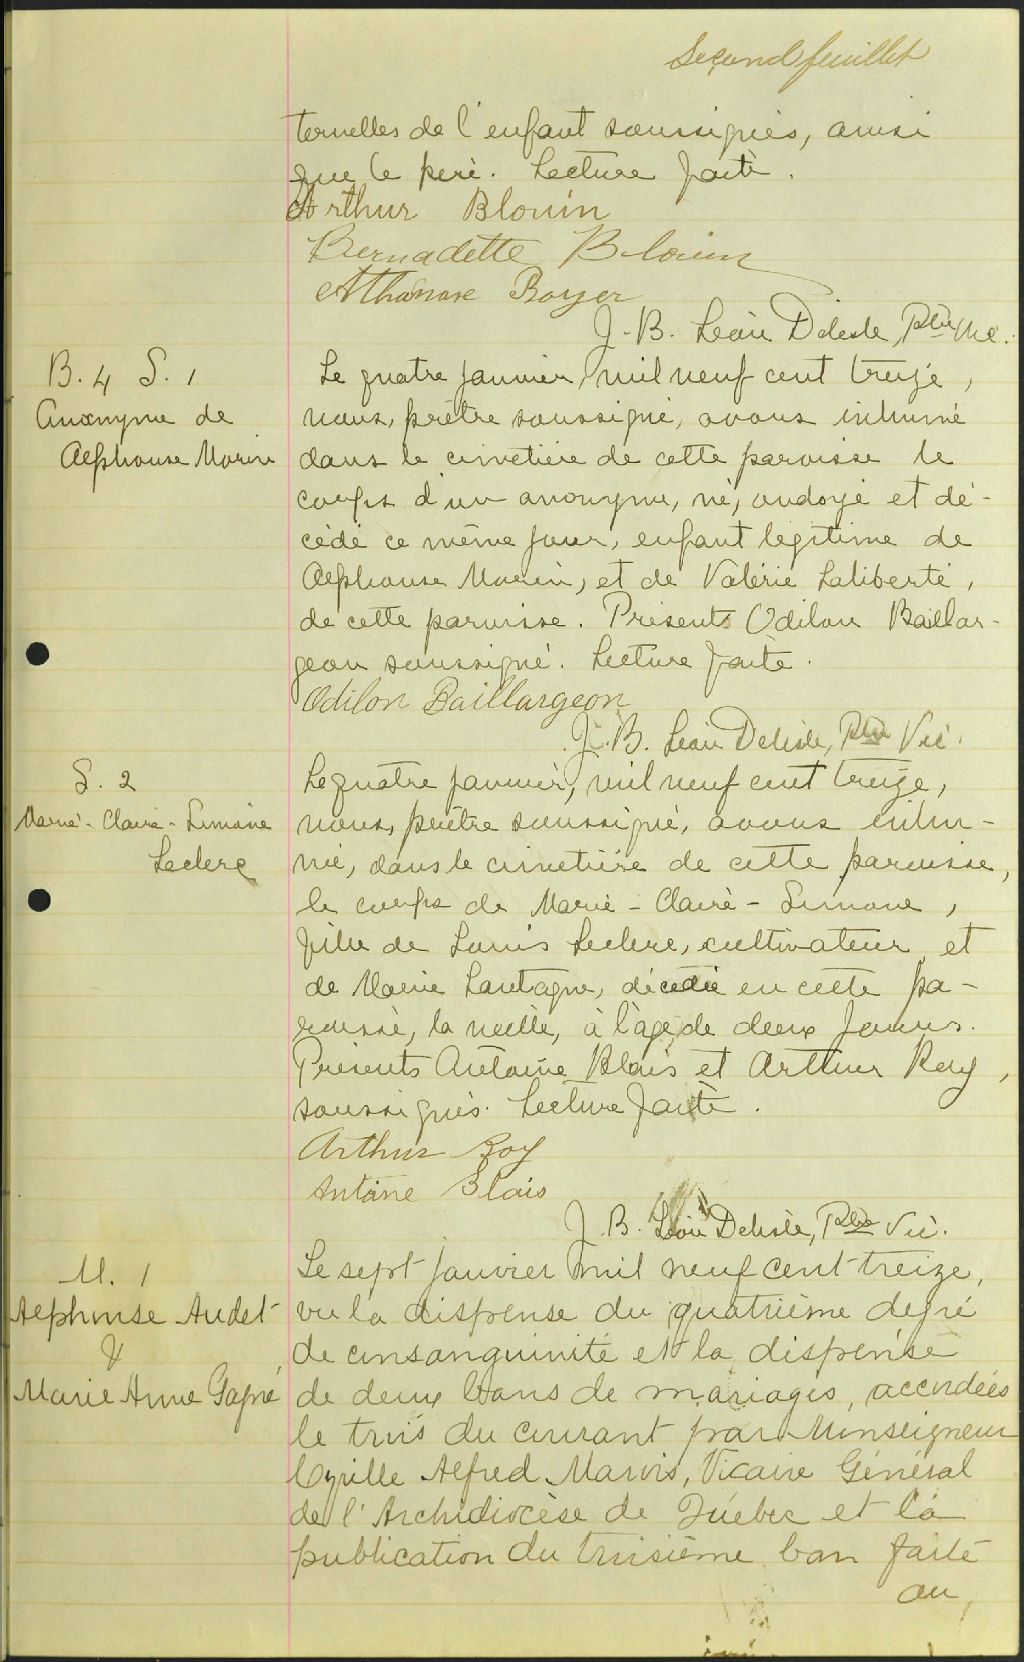 Second feuillet
ternelles de l'enfant soussignés, ainsi
que le père. Lecture faite.
Arthur Blouin
Bernadette Blouin
Athanase Boyer
J. B. Léon Delisle, Ptre Vic.
B. 4 S. 1
Anonyme de
Alphonse Morin
Le quatre janvier, mil neuf cent treize,
nous, prêtre soussigné, avons inhumé
dans le cimetière de cette paroisse le
corps d'un anonyme, né, ondoyé et dé-
cédé ce même jour, enfant légitime de
Alphonse Morin, et de Valérie Laliberté,
de cette paroisse. Présents Odilon Baillar-
geon soussigné. Lecture faite.
Odilon Baillargeon
J. B. Léon Delisle, Ptre Vic.
S. 2
Marie-Claire-Simone
Leclerc
Le quatre janvier, mil neuf cent treize,
nous, prêtre soussigné, avons inhu-
mé, dans le cimetière de cette paroisse,
le corps de Marie-Claire-Simone,
fille de Louis Leclerc, cultivateur et
de Marie Lantagne, décédée en cette pa-
roisse, la veille, à l'âge de deux jours.
Présents Antoine Blais et Arthur Roy,
soussignés. Lecture faite.
Arthur Roy
Antoine Blais
J. B. Léon Delisle, Ptre Vic.
M. 1
Alphonse Audet
&
Marie Anne Gagné
Le sept janvier mil neuf cent treize,
vu la dispense du quatrième degré
de consanguinité et la dispense
de deux bans de mariages, accordées
le trois du courant par Monseigneur
Cyrille Alfred Marois, Vicaire Général
de l'Archidiocèse de Québec et la
publication du troisième ban faite
au